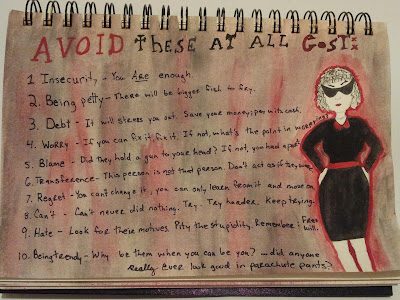 AVOID THESE AT ALL COSTS:
1 Insecurity - You ARE enough.
2. Being petty - There will be bigger fish to fry.
3. Debt - It will stress you out. Save your money; pay with cash.
4. Worry - If you can fix it fix it. If not, what's the point in worrying?
5. Blame - Did they hold a gun to your head? If not, you had a part
6. Transference - This person is not that person. Don't act as if they were.
7. Regret - You can't change it, you can only learn from it and move on
8. Can't - Can't never did nothing. Try. Try harder. Keep trying.
9. Hate - Look for these motives. Pity the stupidity. Remember: Free will.
10. Being trendy - Why be them when you can be you? ...did anyone
really ever look good in parachute pants?